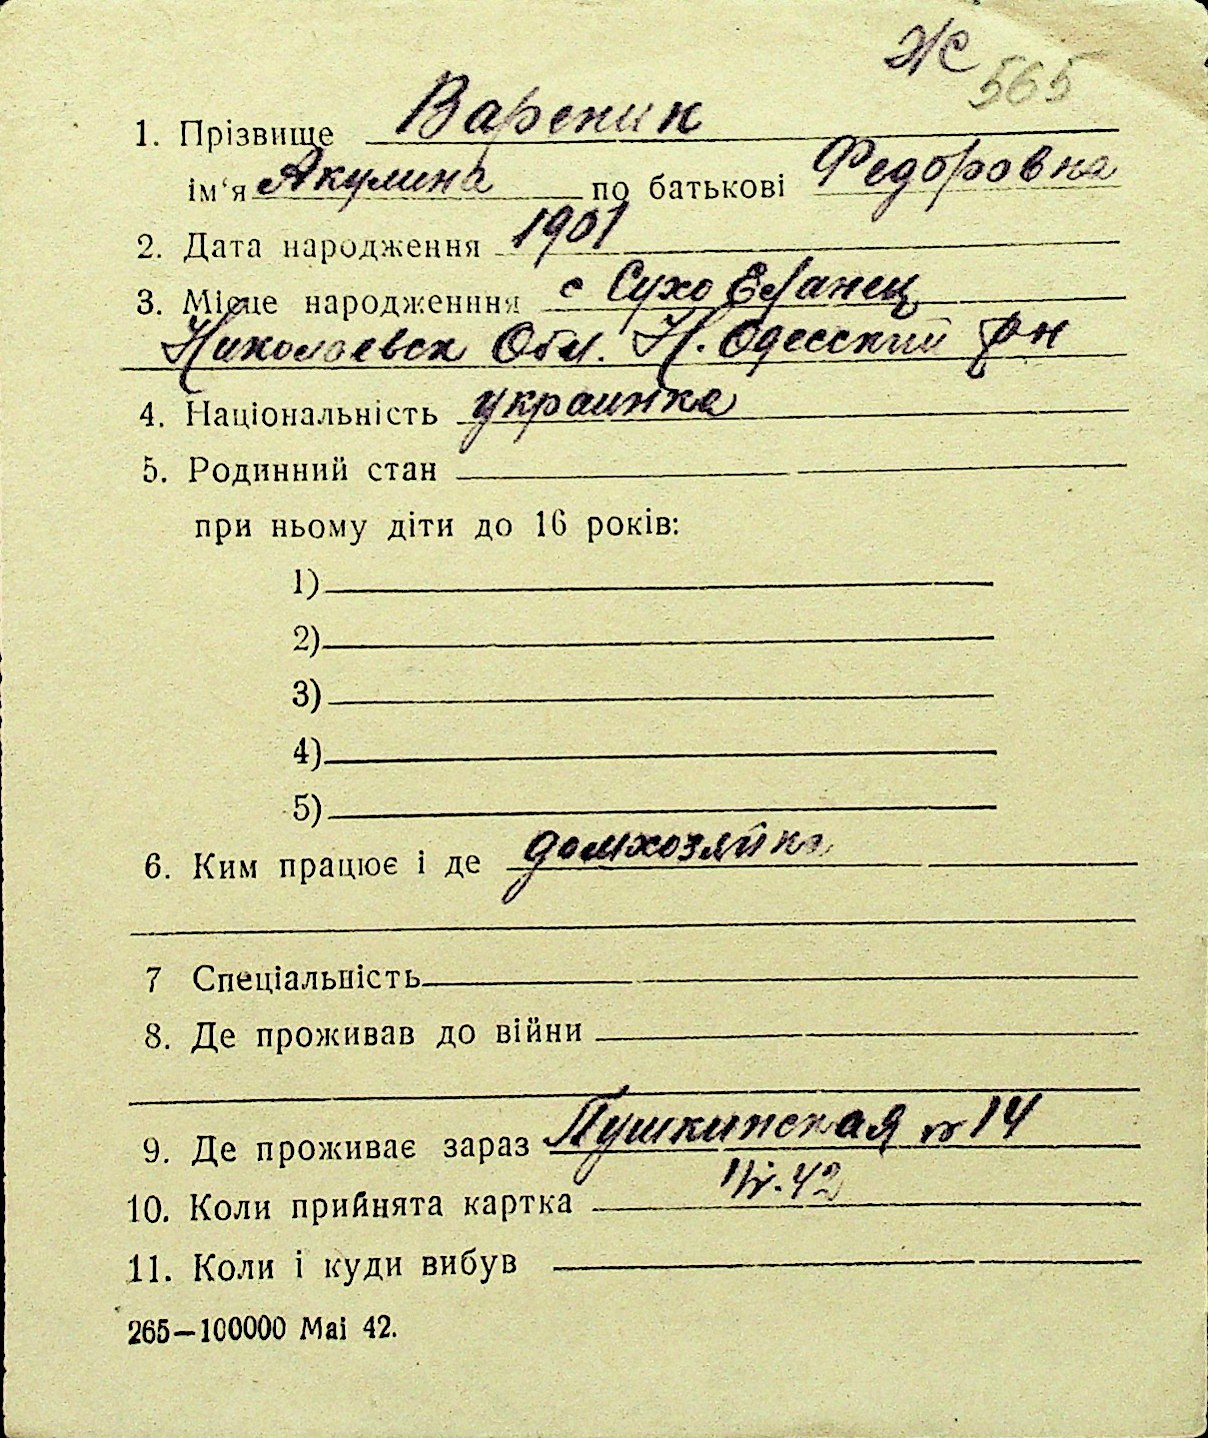 Ж 565
1. Прізвище Вареник
ім'я Акулина по батькові Федоровна
2. Дата народження 1901
3. Місце народженння с Сухо Еланец
Николаевск Обл. Н. Одесский рн
4. Національність украинка
5. Родинний стан
при ньому діти до 16 років:
1)
2)
3)
4)
5)
6. Ким працює і де домхозяйка
7 Спеціальність
8. Де проживав до війни
9. Де проживає зараз Пушкинская № 14
10. Коли прийнята картка 42
11. Коли і куди вибув
265—100000 Mai 42.